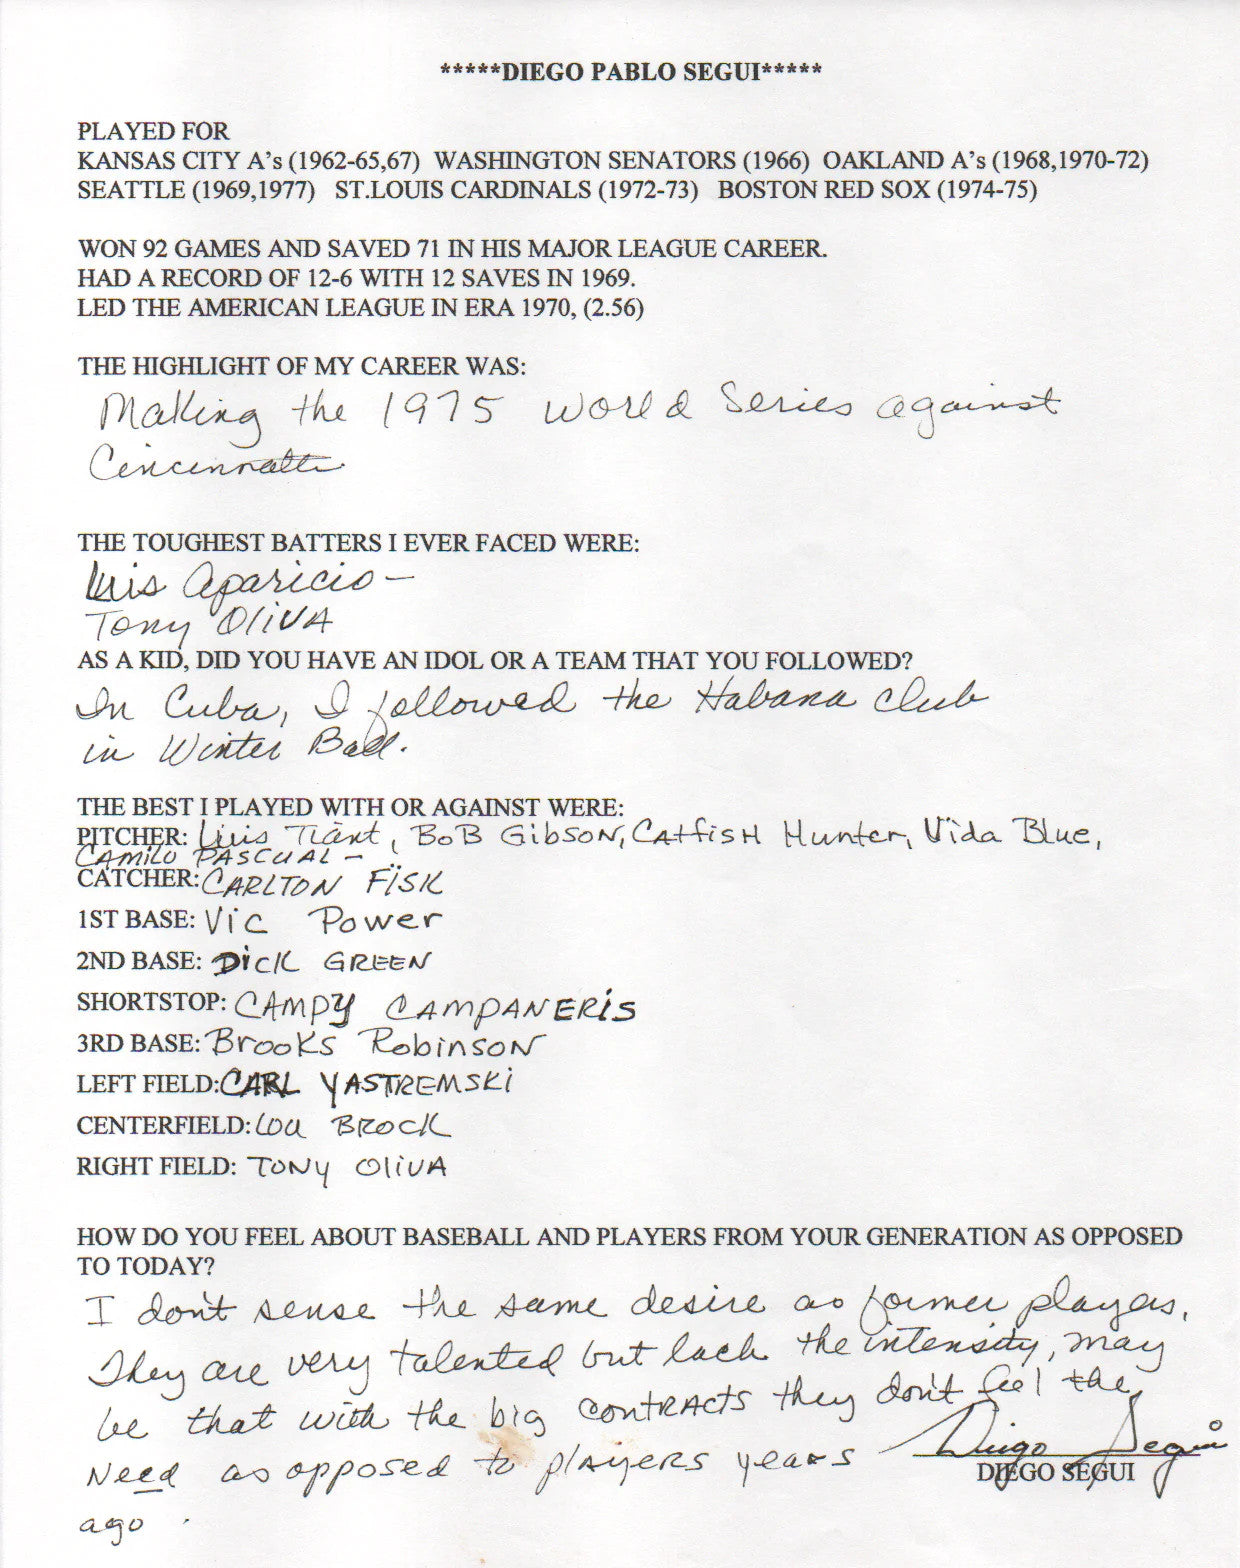 *****DIEGO PABLO SEGUI*****
PLAYED FOR
KANSAS CITY A's (1962-65,67) WASHINGTON SENATORS (1966) OAKLAND A's (1968,1970-72)
SEATTLE (1969,1977) ST.LOUIS CARDINALS (1972-73) BOSTON RED SOX (1974-75)
WON 92 GAMES AND SAVED 71 IN HIS MAJOR LEAGUE CAREER.
HAD A RECORD OF 12-6 WITH 12 SAVES IN 1969.
LED THE AMERICAN LEAGUE IN ERA 1970, (2.56)
THE HIGHLIGHT OF MY CAREER WAS:
Making the 1975 World Series against
Cincinnatti
THE TOUGHEST BATTERS I EVER FACED WERE:
Luis Aparicio -
Tony Oliva
AS A KID, DID YOU HAVE AN IDOL OR A TEAM THAT YOU FOLLOWED?
In Cuba, I followed the Habana Club
in Winter Ball.
THE BEST I PLAYED WITH OR AGAINST WERE:
PITCHER: Luis Tiant, BoB Gibson, Catfish Hunter, Vida Blue,
CAMILO PASCUAL -
CATCHER: CARLTON FISK
1ST BASE: Vic Power
2ND BASE: DICK GREEN
SHORTSTOP: CAMPY CAMPANERIS
3RD BASE: Brooks Robinson
LEFT FIELD: CARL YASTREMSKI
CENTERFIELD: LOU BROCK
RIGHT FIELD: TONY OLIVA
HOW DO YOU FEEL ABOUT BASEBALL AND PLAYERS FROM YOUR GENERATION AS OPPOSED
TO TODAY?
I don't sense the same desire as former players.
They are very talented but lack the intensity, may
be that with the big contracts they don't feel the
Need as opposed to players years
Diego Segui
DIEGO SEGUI
ago.